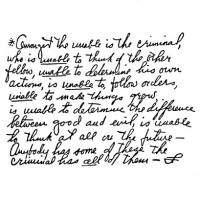 *Amongst the unable is the criminal,
who is unable to think of the other
fellow, unable to determine his own
actions, is unable to follow orders,
unable to make things grow,
is unable to determine the difference
between good and evil, is unable
to think at all on the future—
Anybody has some of these the
criminal has all of them—